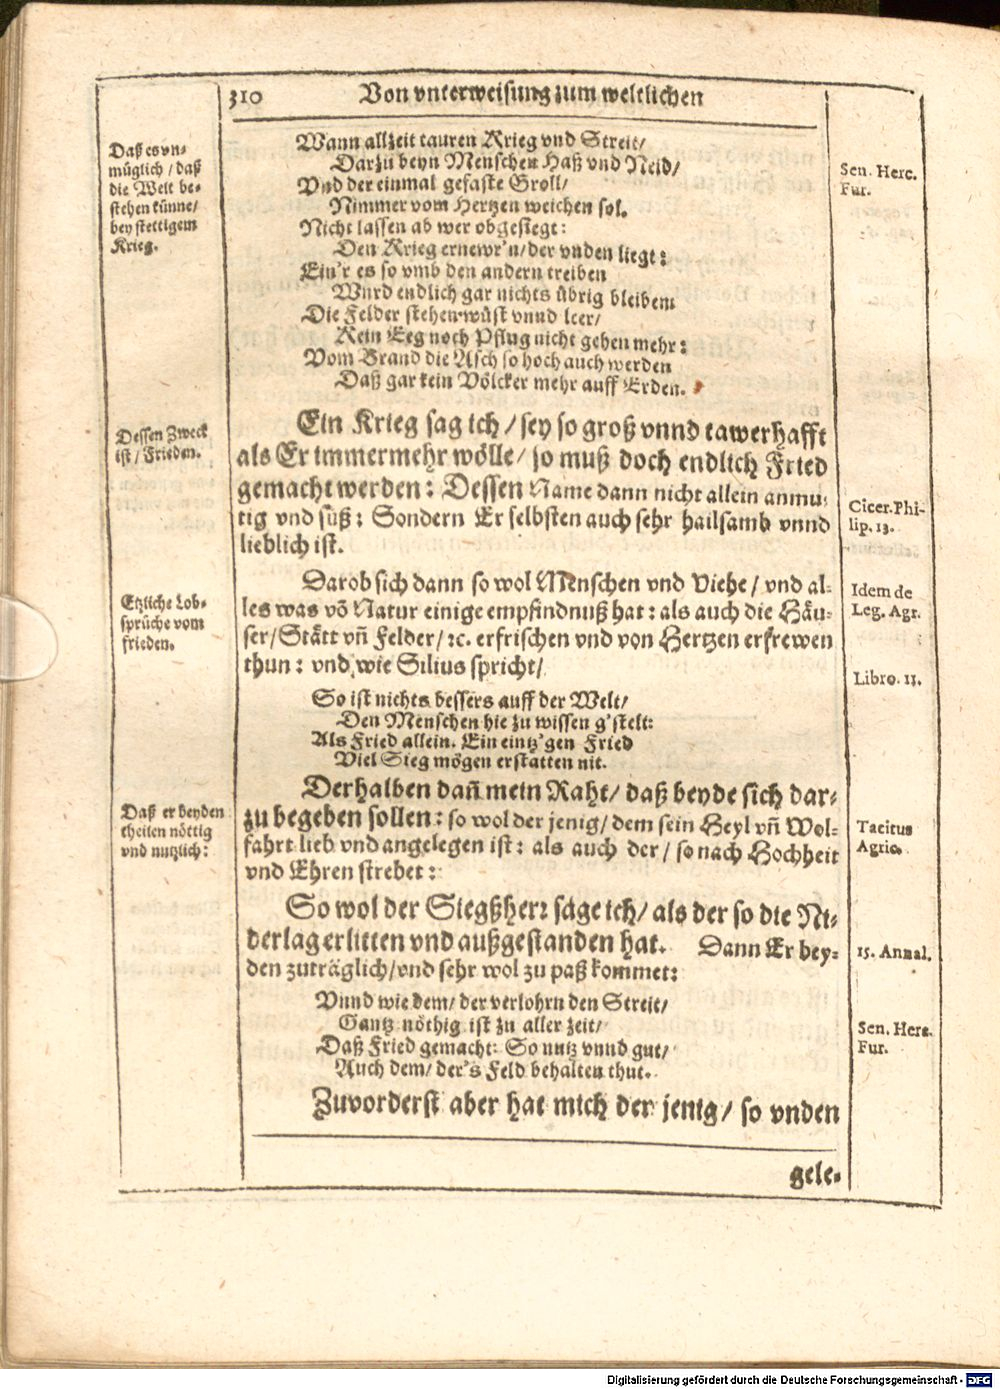 310 Von vnterweisung zum weltlichen
Daß es vn-
müglich / daß
die Welt be-
stehen künne/
bey stettigem
Krieg.
Wann allzeit tauren Krieg vnd Streit/
Darzu beyn Menschen Haß vnd Neid/
Vnd der einmal gefaste Groll/
Nimmer vom Hertzen weichen sol.
Nicht lassen ab wer obgesiegt:
Den Krieg ernewr'n/ der vnden liegt:
Ein'r es so vmb den andern treiben
Wurd endlich gar nichts übrig bleiben:
Die Felder stehen wüst vnnd leer/
Kein Eeg noch Pflug nicht gehen mehr:
Vom Brand die Asch so hoch auch werden
Daß gar kein Völcker mehr auff Erden.
Sen. Herc.
Fur.
Dessen Zweck
ist / Frieden.
Ein Krieg sag ich / sey so groß vnnd tawerhafft
als Er immermehr wölle/ so muß doch endlich Fried
gemacht werden: Dessen Name dann nicht allein anmu-
tig vnd süß: Sondern Er selbsten auch sehr hailsamb vnnd
lieblich ist.
Cicer. Phi-
lip. 13.
Etzliche Lob-
sprüche vom
frieden.
Darob sich dann so wol Menschen vnd Viehe / vnd al-
les was vō Natur einige empfindnuß hat: als auch die Häu-
ser/ Stätt vñ Felder/ ꝛc. erfrischen vnd von Hertzen erfrewen
thun: vnd wie Silius spricht/
Idem de
Leg. Agr.
Libro. 11.
So ist nichts bessers auff der Welt/
Den Menschen hie zu wissen g'stelt:
Als Fried allein. Ein eintz'gen Fried
Viel Sieg mögen erstatten nit.
Daß er beyden
theilen nöttig
vnd nutzlich:
Derhalben dañ mein Raht/ daß beyde sich dar-
zu begeben sollen: so wol der jenig/ dem sein Heyl vñ Wol-
fahrt lieb vnd angelegen ist: als auch der / so nach Hochheit
vnd Ehren strebet:
Tacitus
Agric.
So wol der Siegßherr säge ich/ als der so die Ni-
derlag erlitten vnd außgestanden hat. Dann Er bey-
den zuträglich/ vnd sehr wol zu paß kommet:
15. Annal.
Vnnd wie dem/ der verlohrn den Streit/
Gantz nöthig ist zu aller zeit/
Daß Fried gemacht: So nutz vnnd gut/
Auch dem/ der's Feld behalten thut.
Sen. Herc.
Fur.
Zuvorderst aber hat mich der jenig / so vnden
gele-
Digitalisierung gefördert durch die Deutsche Forschungsgemeinschaft - DFG